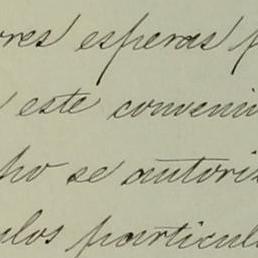 ores esperas p
este conveni
ho se autoriz
ulos particul